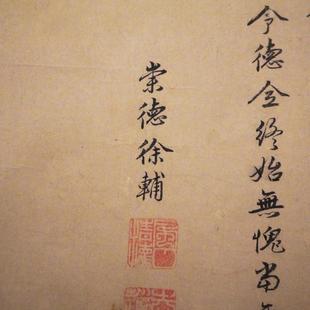 令德全終始無愧當
崇德徐輔